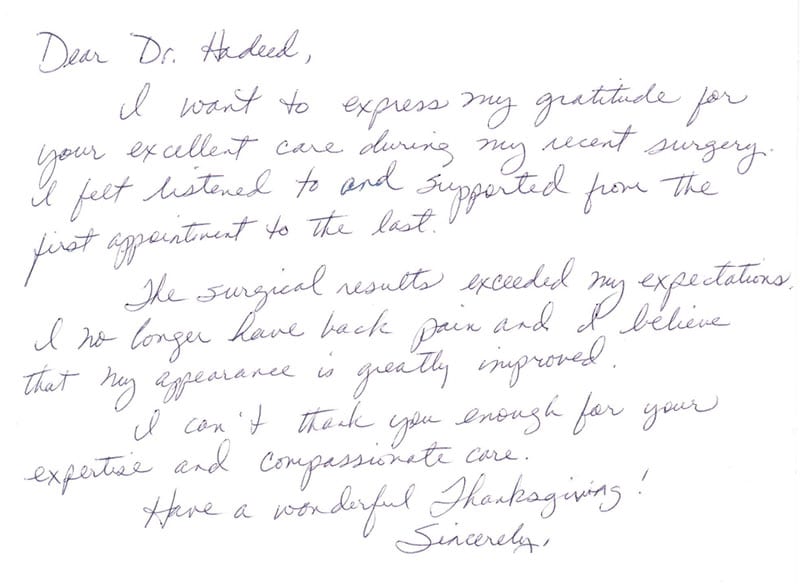 Dear Dr. Hadeed,
I want to express my gratitude for
your excellent care during my recent surgery.
I felt listened to and supported from the
first appointment to the last.
The surgical results exceeded my expectations.
I no longer have back pain and I believe
that my appearance is greatly improved.
I can't thank you enough for your
expertise and compassionate care.
Have a wonderful Thanksgiving!
Sincerely,